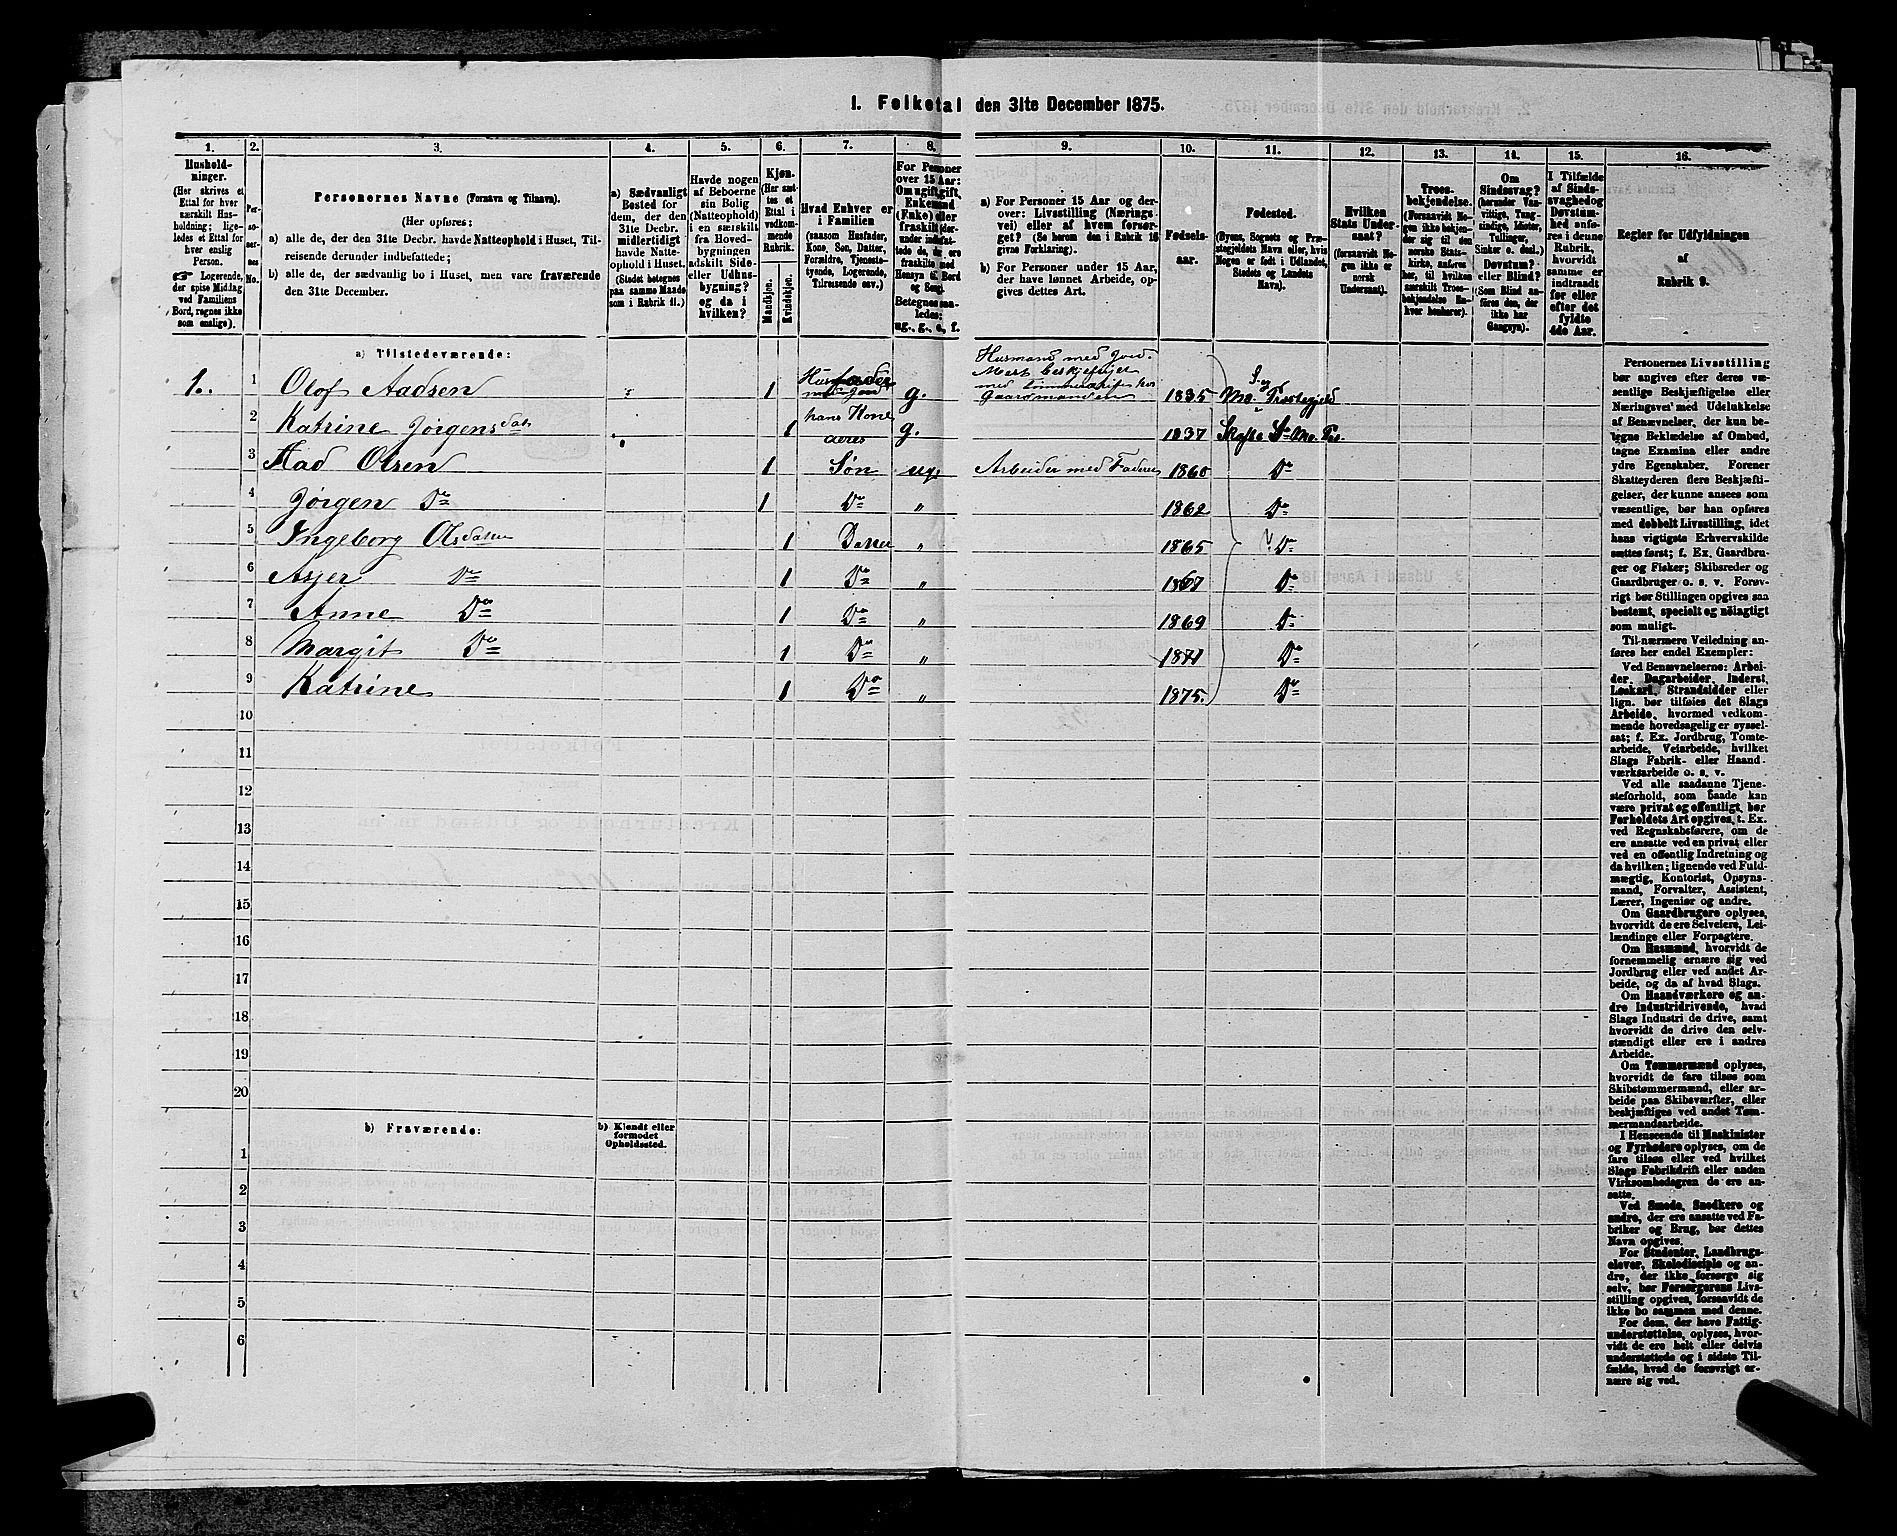 1. Folketal den 31te December 1875.
1. 2. 3. 4. 5. 6. 7. 8. 9. 10. 11. 12. 13. 14. 15. 16.
Hushold-
ninger.
(Her skrives et
Ettal for hver
særskilt Hus-
holdning; lige-
ledes et Ettal for
hver enslig
Person.
Logerende,
der spise Middag
ved Familiens
Bord, regnes ikke
som enslige).
Per-
so-
ner-
nes
No.
Personernes Navne (Fornavn og Tilnavn).
(Her opføres:
a) alle de, der den 31te Decbr. havde Natteophold i Huset, Til-
reisende derunder indbefattede;
b) alle de, der sædvanlig bo i Huset, men vare fraværende
den 31te December.
a) Sædvanligt
Bosted for
dem, der den
31te Decbr.
midlertidigt
havde Natte-
ophold i Huset.
(Stedet betegnes
paa samme Maade
som i Rubrik 11.)
Havde nogen
af Beboerne
sin Bolig
(Natteophold)
i en særskilt
fra Hoved-
bygningen
adskilt Side-
eller Udhus-
bygning?
og da i
hvilken?
Kjøn.
(Her sæt-
tes et
Ettal i
vedkom-
mende
Rubrik.
Mandkjøn.
Kvindekjøn.
Hvad Enhver er
i Familien
(saasom Husfader,
Kone, Søn, Datter,
Forældre, Tjeneste-
tyende, Logerende,
Tilreisende osv.)
For Personer
over 15 Aar:
Om ugift, gift,
Enkemand
(Enke) eller
fraskilt (der-
under indfat-
tede de, der ere
fraskilte med
Hensyn til Bord
og Seng).
Betegnes saa-
ledes:
ug., g., e., f.
a) For Personer 15 Aar og der-
over: Livsstilling (Nærings-
vei) eller af hvem forsør-
get? (Se herom den i Rubrik 16
givne Forklaring).
b) For Personer under 15 Aar,
der have lønnet Arbeide, op-
gives dettes Art.
Fødsels-
aar.
Fødested.
(Byens, Sognets og Præ-
stegjeldets Navn eller, hvis
Nogen er født i Udlandet,
Stedets og Landets
Navn).
Hvilken
Stats Under-
saat?
(forsaavidt No-
gen ikke er
norsk
Undersaat).
Troes-
bekjendelse.
(Forsaavidt No-
gen ikke bekjen-
der sig til den
norske Stats-
kirke, anføres
her, til hvilken
særskilt Troes-
bekjendelse En-
hver henhører).
Om
Sindssvag?
(herunder Van-
vittige, Tung-
sindige, Idioter,
Tullinger,
Sinker o. desl.)
Døvstum?
eller Blind?
(Som Blind an-
føres den, der
ikke har
Gangsyn).
I Tilfælde
af Sinds-
svaghed og
Døvstum-
hed anfø-
res i denne
Rubrik,
hvorvidt
samme er
indtraadt
før eller
efter det
fyldte
4de Aar.
Regler for Udfyldningen
af
Rubrik 9.
a) Tilstedeværende:
1. 1 Olof Aadsen 1 Husfader g. Husmand med Jord. 1835 Mo. S. og Præstegjeld
2 Katrine Jørgensdatr 1 hans Kone g. 1837 Skafse S. Mo. Præ.
deres
3 Aad Olsen 1 Søn ug. Arbeider med Faderen 1860 Do
4 Jørgen Do 1 Do „ 1862 Do
5 Ingeborg Olsdatter 1 Datter „ 1865 Do
6 Asjer Do 1 Do „ 1867 Do
7 Anne Do 1 Do „ 1869 Do
8 Margit Do 1 Do „ 1871 Do
9 Katrine 1 Do „ 1875. Do
10
11
12
13
14
15
16
17
18
19
20
b) Fraværende: b) Kjendt eller
formodet
Opholdssted.
1
2
3
4
5
6
Personernes Livsstilling
bør angives efter deres væ-
sentlige Beskjæftigelse eller
Næringsvei med Udelukkelse
af Benævnelser, der kun be-
tegne Beklædelse af Ombud,
tagne Examina eller andre
ydre Egenskaber. Forener
Skatteyderen flere Beskjæfti-
gelser, der kunne ansees som
væsentlige, bør han opføres
med dobbelt Livsstilling, idet
hans vigtigste Erhvervskilde
sættes først; f. Ex. Gaardbru-
ger og Fisker; Skibsreder og
Gaardbruger o. s. v. Forøv-
rigt bør Stillingen opgives saa
bestemt, specielt og nøiagtigt
som muligt.
Til nærmere Veiledning an-
føres her endel Exempler:
Ved Benævnelserne: Arbei-
der, Dagarbeider, Inderst,
Løskarl, Strandsidder eller
lign. bør tilføies det Slags
Arbeide, hvormed vedkom-
mende hovedsagelig er syssel-
sat; f. Ex. Jordbrug, Tomte-
arbeide, Veiarbeide, hvilket
Slags Fabrik- eller Haand-
værksarbeide o. s. v.
Ved alle saadanne Tjene-
steforhold, som baade kan
være privat og offentligt, bør
Forholdets Art opgives, t. Ex.
ved Regnskabsførere, om de
ere ansatte ved en privat eller
ved en offentlig Indretning og
da hvilken; lignende ved Fuld-
mægtig, Kontorist, Opsyns-
mand, Forvalter, Assistent,
Lærer, Ingeniør og andre.
Om Gaardbrugere oplyses,
hvorvidt de ere Selveiere, Lei-
lændinge eller Forpagtere.
Om Husmænd, hvorvidt de
fornemmelig ernære sig ved
Jordbrug eller ved andet Ar-
beide, og da af hvad Slags.
Om Haandværkere og an-
dre Industridrivende, hvad
Slags Industri de drive, samt
hvorvidt de drive den selv-
stændigt eller ere i andres
Arbeide.
Om Tømmermænd oplyses,
hvorvidt de fare tilsøs som
Skibstømmermænd, eller ar-
beide paa Skibsværfter, eller
beskjæftiges ved andet Tøm-
mermandsarbeide.
I Henseende til Maskinister
og Fyrbødere oplyses, om de
fare tilsøs eller ved hvilket
Slags Fabrikdrift eller anden
Virksomhedsgren de ere an-
satte.
Ved Smede, Snedkere og
andre, der ere ansatte ved Fa-
briker og Brug, bør dettes
Navn opgives.
For Studenter, Landbrugs-
elever, Skoledisciple og an-
dre, der ikke forsørge sig
selv, bør Forsørgerens Livs-
stilling opgives, forsaavidt de
ikke bo sammen med denne.
For dem, der have Fattig-
understøttelse, oplyses, hvor-
vidt de ere helt eller delvis
understøttede og i sidste Til-
fælde, hvad de forøvrigt er-
nære sig ved.